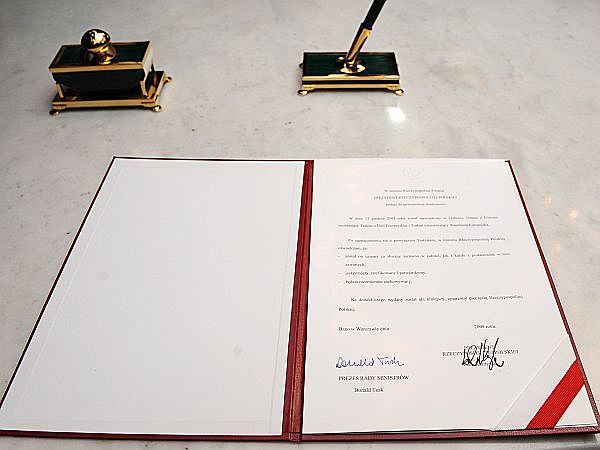 W imieniu Rzeczypospolitej Polskiej
PREZYDENT RZECZYPOSPOLITEJ POLSKIEJ
podaje do powszechnej wiadomości:
W dniu 13 grudnia 2007 roku został sporządzony w Lizbonie Traktat z Lizbony
zmieniający Traktat o Unii Europejskiej i Traktat ustanawiający Wspólnotę Europejską.
Po zapoznaniu się z powyższym Traktatem, w imieniu Rzeczypospolitej Polskiej
oświadczam, że:
- został on uznany za słuszny zarówno w całości, jak i każde z postanowień w nim
zawartych,
- jest przyjęty, ratyfikowany i potwierdzony,
- będzie niezmiennie zachowywany.
Na dowód czego wydany został akt niniejszy, opatrzony pieczęcią Rzeczypospolitej
Polskiej.
Dano w Warszawie dnia 2009 roku.
RZECZYPOSPOLITEJ POLSKIEJ
Donald Tusk
PREZES RADY MINISTRÓW
Donald Tusk